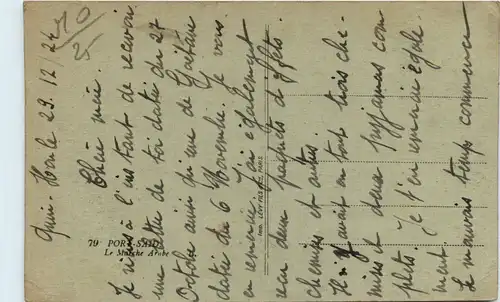 Quin-Hone le 23/12/24
10
25
Chère mère.
Je viens à l'instant de recevoir
une lettre de toi datée du 27
Octobre ainsi qu'une de Gaëtane
datée du 6 Novembre. Je vous
en remercie. J'ai également
reçu deux paquets d'effets
chemises et autres.
Il y avait en tout trois che-
mises et deux pyjamas com
plets. Je t'en remercie égale-
ment.
Le mauvais temps commence
79 PORT-SAÏD
Le Marché Arabe
Imp. LEVY FILS & Cie, PARIS